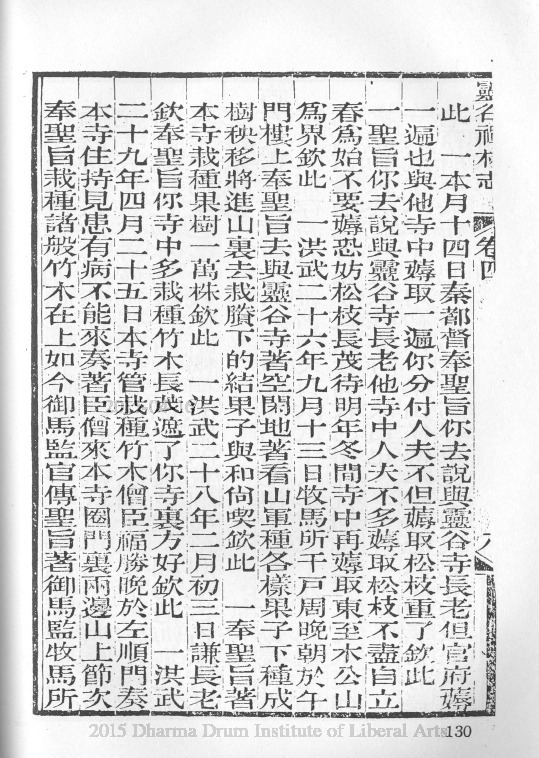 靈谷禪林志 卷四 八
此　一本月十四日秦都督奉聖旨你去說與靈谷寺長老但官府薅
一遍也與他寺中薅取一遍你分付人夫不但薅取松枝重了欽此
一聖旨你去說與靈谷寺長老他寺中人夫不多薅取松枝不盡自立
春為始不要薅恐妨松枝長茂待明年冬間寺中再薅取東至木公山
為界欽此　一洪武二十六年九月十三日牧馬所千戶周晚朝於午
門樓上奉聖旨去與靈谷寺著空閑地著看山軍種各樣果子下種成
樹秧移將進山裏去栽賸下的結果子與和尚喫欽此　一奉聖旨著
本寺栽種果樹一萬株欽此　一洪武二十八年二月初三日謙長老
欽奉聖旨你寺中多栽種竹木長茂遮了你寺裏方好欽此　一洪武
二十九年四月二十五日本寺管栽種竹木僧臣福勝晚於左順門奏
本寺住持見患有病不能來奏著臣僧來本寺圈門裏兩邊山上節次
奉聖旨栽種諸般竹木在上如今御馬監官傳聖旨著御馬監牧馬所
2015 Dharma Drum Institute of Liberal Arts
130